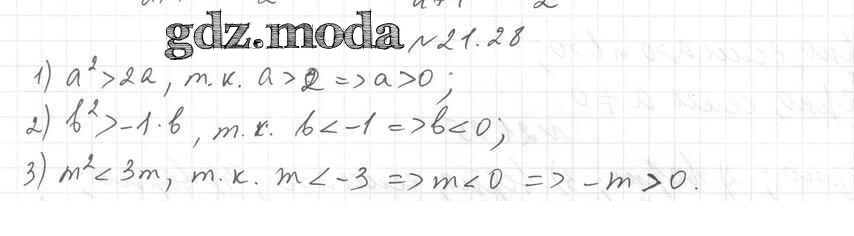 gdz.moda №21.28
1) a² > 2a, т.к. a > 2 => a > 0;
2) b² > -1·b, т.к. b < -1 => b < 0;
3) m² < 3m, т.к. m < -3 => m < 0 => -m > 0.